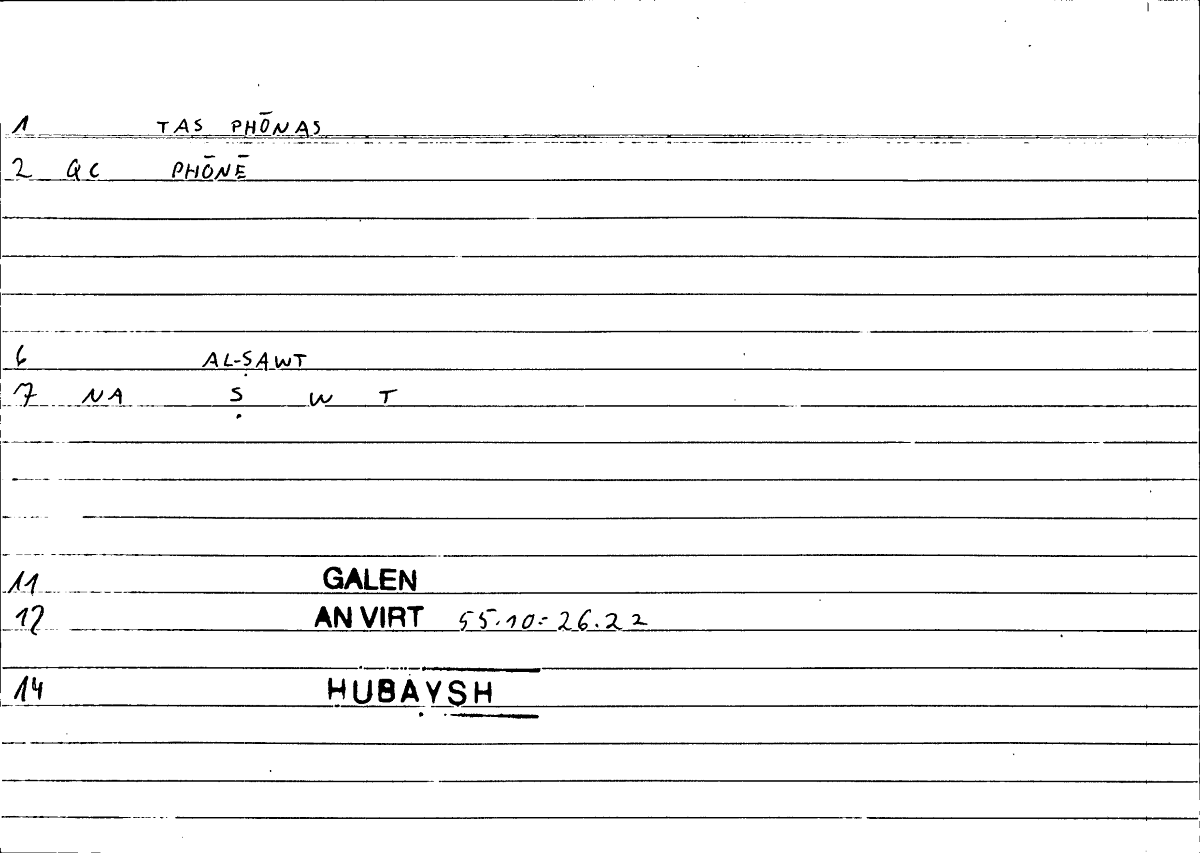 1 TAS PHŌNAS
2 QC PHŌNĒ
6 AL-ṢAWT
7 NA Ṣ W T
11 GALEN
12 AN VIRT 55.10 = 26.22
14 HUBAYSH